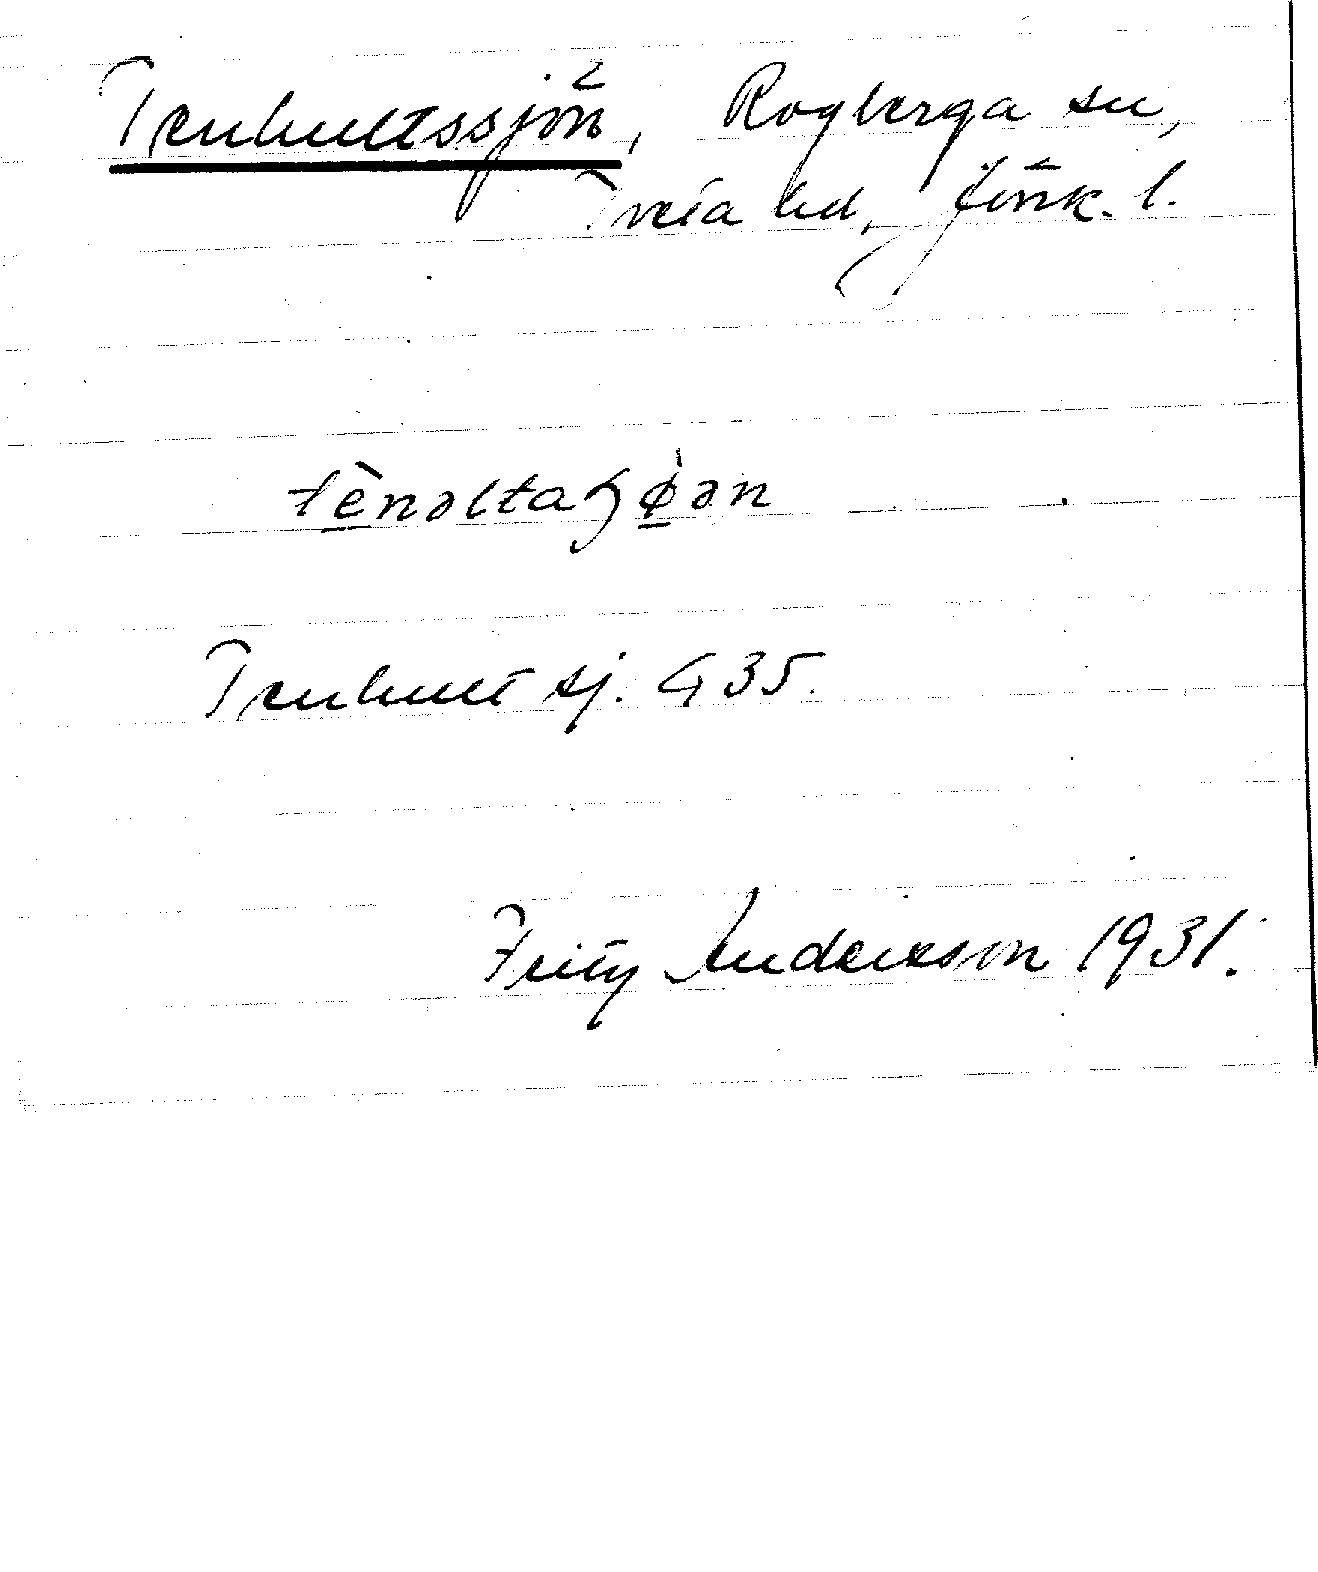 Tenhultssjön, Rogberga sn,
Tveta hd, Jönk. l.
tènəltaɧø̀ən
Tenhult sj. G 35.
Fritz Andersson 1931.